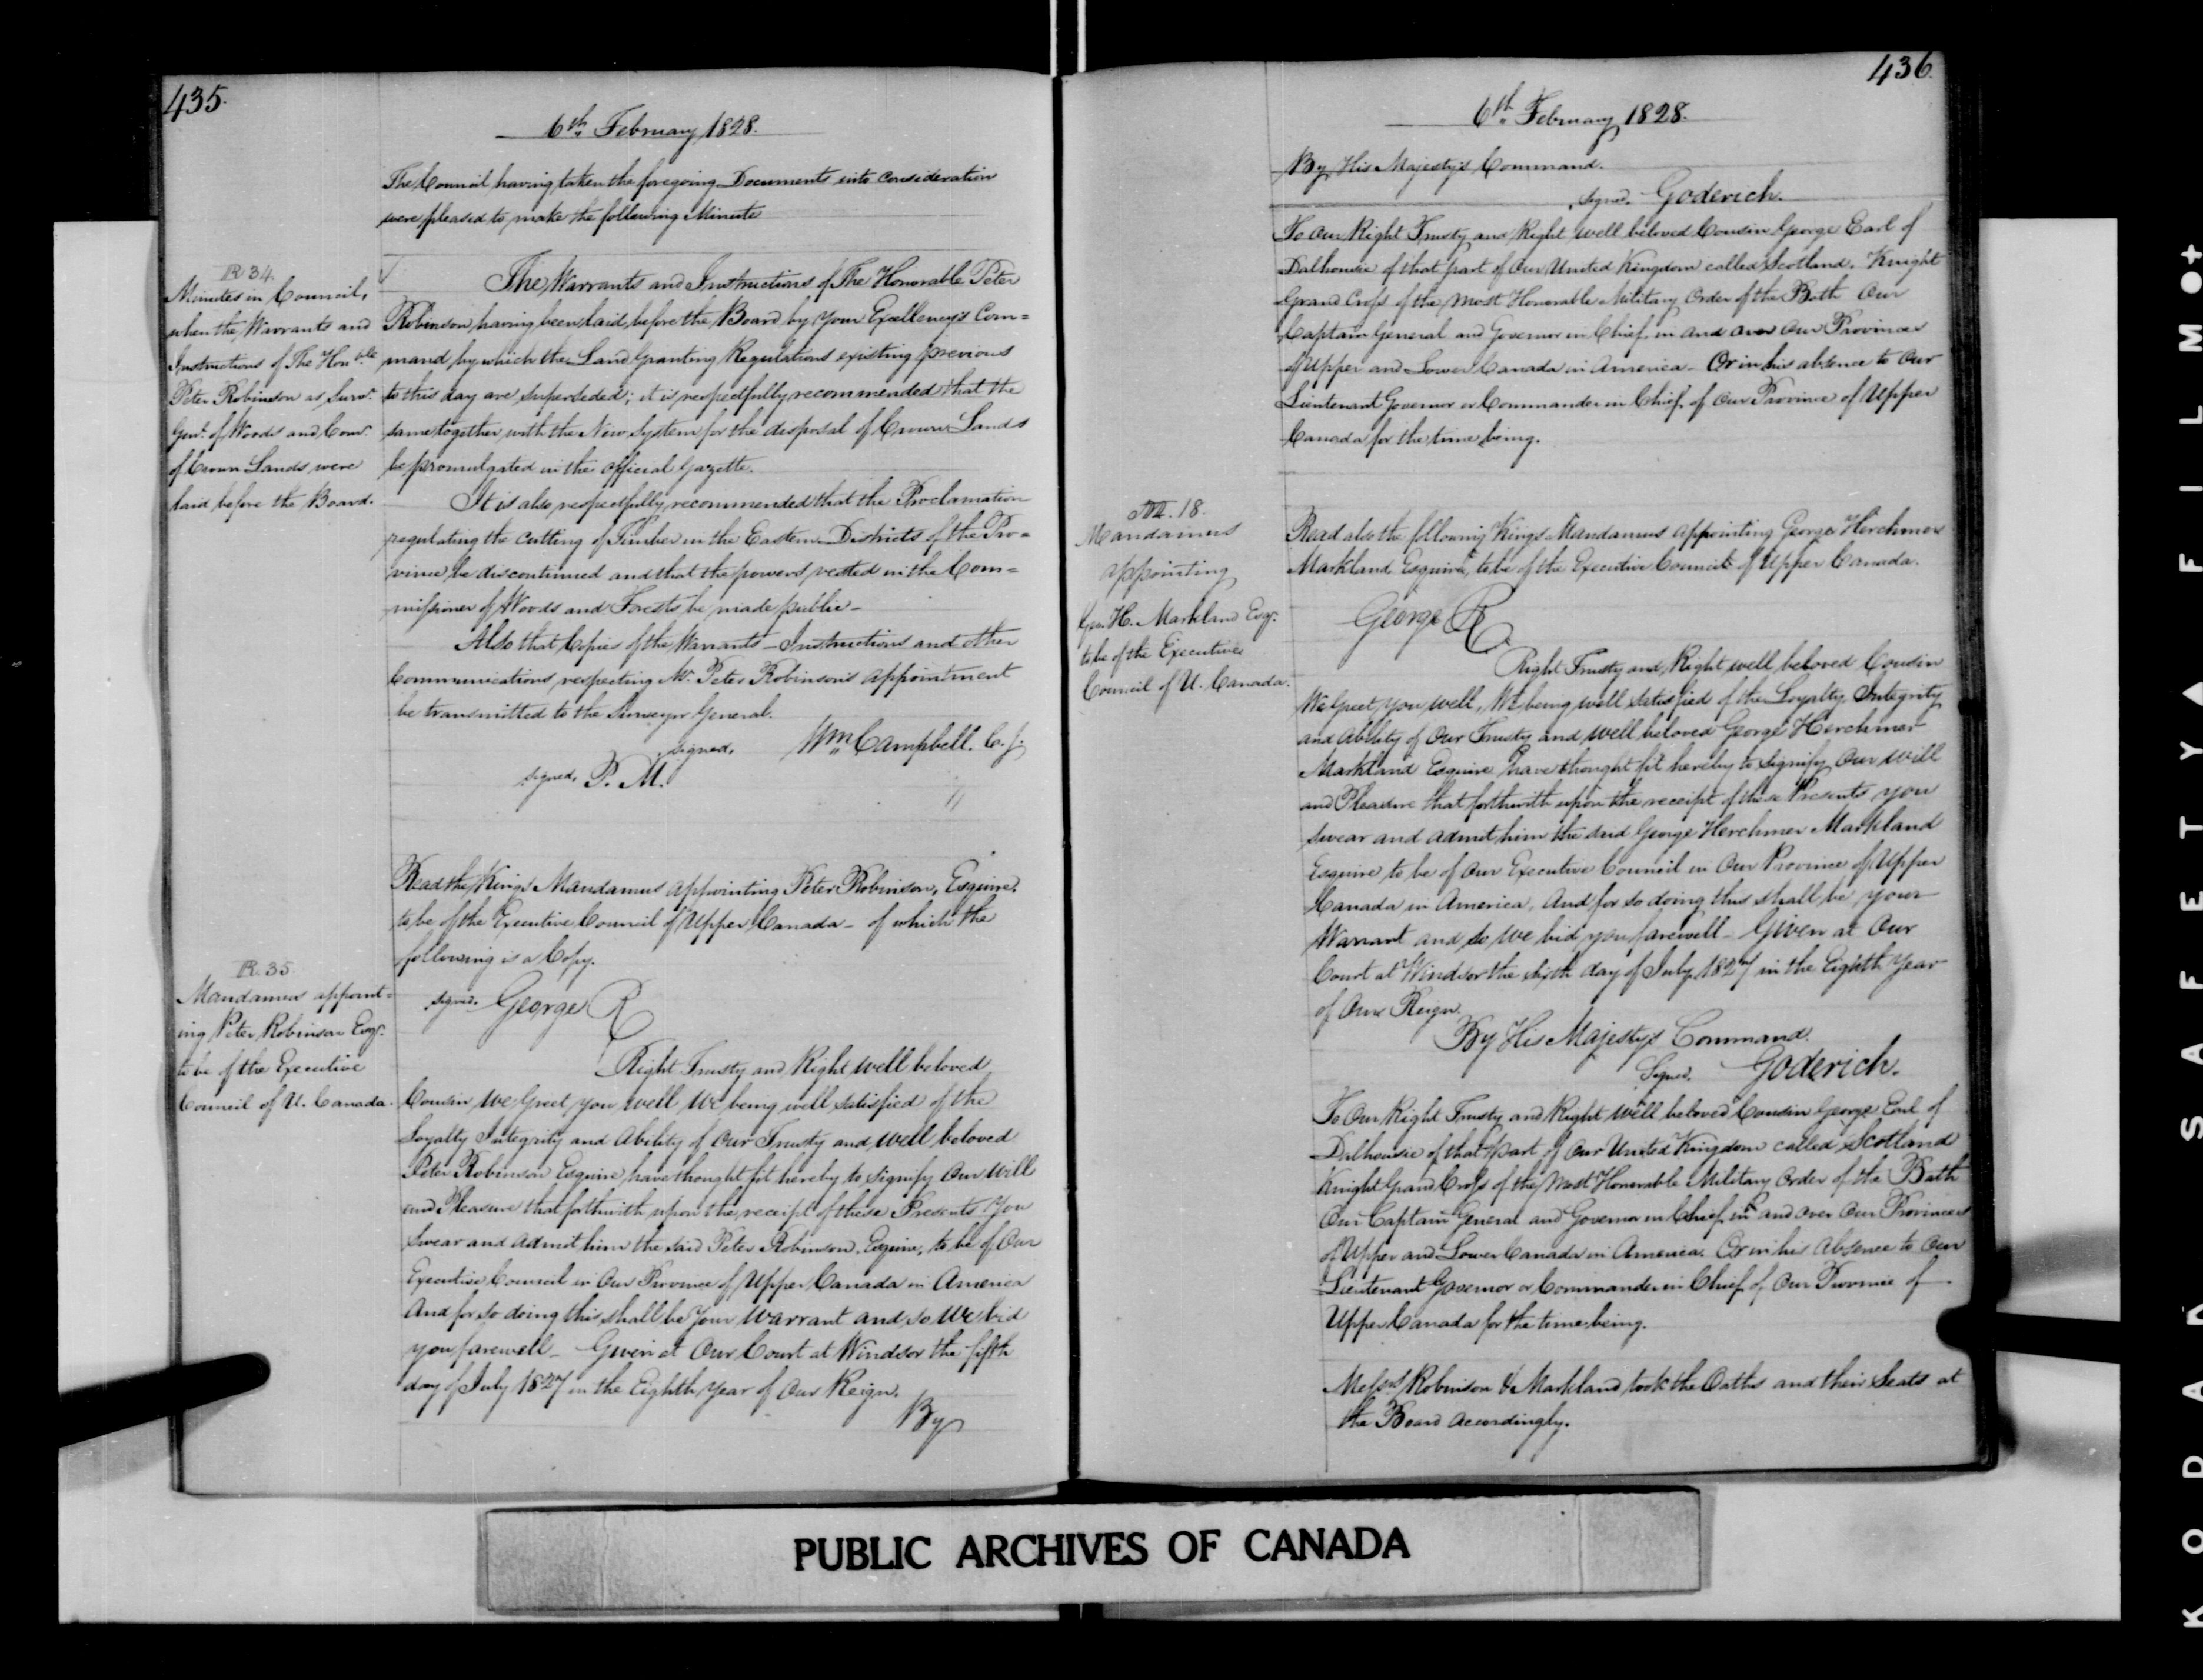 435.
6th February 1828.
The Council having taken the foregoing Documents into consideration
were pleased to make the following Minute
R 34.
Minutes in Council,
when the Warrants and
Instructions of The Honble
Peter Robinson as Survr.
Genl. of Woods and Comr.
of Crown Lands were
laid before the Board.
The Warrants and Instructions of The Honorable Peter
Robinson having been laid before the Board by Your Excellency's Com=
mand by which the Land Granting Regulations existing previous
to this day are superseded; it is respectfully recommended that the
same together with the New System for the disposal of Crown Lands
be promulgated in the official Gazette.
It is also respectfully recommended that the Proclamation
regulating the cutting of Timber in the Eastern Districts of the Pro=
vince, be discontinued and that the powers vested in the Com=
missioner of Woods and Forests be made public—
Also that Copies of the Warrants—Instructions and other
Communications respecting Mr. Peter Robinson's appointment
be transmitted to the Surveyor General.
signed, Wm Campbell. C. J.
signed, P. M.
Read the Kings Mandamus appointing Peter Robinson, Esquire,
to be of the Executive Council of Upper Canada— of which the
following is a Copy.
R. 35
Mandamus appoint=
ing Peter Robinson Esqr.
to be of the Executive
Council of U. Canada.
signed. George R
Right Trusty and Right well beloved
Cousin We Greet you well We being well satisfied of the
Loyalty Integrity and Ability of Our Trusty and well beloved
Peter Robinson Esquire have thought fit hereby to signify Our Will
and Pleasure that forthwith upon the receipt of these Presents You
Swear and admit him the said Peter Robinson, Esquire, to be of Our
Executive Council in Our Province of Upper Canada in America
And for so doing this shall be Your Warrant and so We bid
you farewell— Given at Our Court at Windsor the fifth
day of July 1827 in the Eighth Year of Our Reign.
By
436.
6th February 1828.
By His Majesty's Command.
signed. Goderich.
To Our Right Trusty and Right well beloved Cousin George Earl of
Dalhousie of that part of Our United Kingdom called Scotland. Knight
Grand Cross of the Most Honorable Military Order of the Bath Our
Captain General and Governor in Chief in and over Our Provinces
of Upper and Lower Canada in America— Or in his absence to Our
Lieutenant Governor or Commander in Chief of Our Province of Upper
Canada for the time being.
M. 18.
Mandamus
appointing
Geo. H. Markland Esqr.
to be of the Executive
Council of U. Canada.
Read also the following Kings Mandamus appointing George Herchmer
Markland Esquire, to be of the Executive Council of Upper Canada.
George R
Right Trusty and Right well beloved Cousin
We Greet you well, We being well satisfied of the Loyalty Integrity
and Ability of Our Trusty and well beloved George Herchmer
Markland Esquire have thought fit hereby to signify Our Will
and Pleasure that forthwith upon the receipt of these Presents you
swear and admit him the said George Herchmer Markland
Esquire to be of Our Executive Council in Our Province of Upper
Canada in America, And for so doing this shall be your
Warrant and so We bid you farewell— Given at Our
Court at Windsor the sixth day of July 1827 in the Eighth Year
of Our Reign.
By His Majestys Command.
Signed, Goderich.
To Our Right Trusty and Right Well beloved Cousin George Earl of
Dalhousie of that part of Our United Kingdom called Scotland
Knight Grand Cross of the Most Honorable Military Order of the Bath
Our Captain General and Governor in Chief in and over Our Provinces
of Upper and Lower Canada in America. Or in his Absence to Our
Lieutenant Governor or Commander in Chief of Our Province of
Upper Canada for the time being.
Messrs Robinson & Markland took the Oaths and their Seats at
the Board accordingly.
PUBLIC ARCHIVES OF CANADA
KODAK SAFETY ▲ FILM ●+